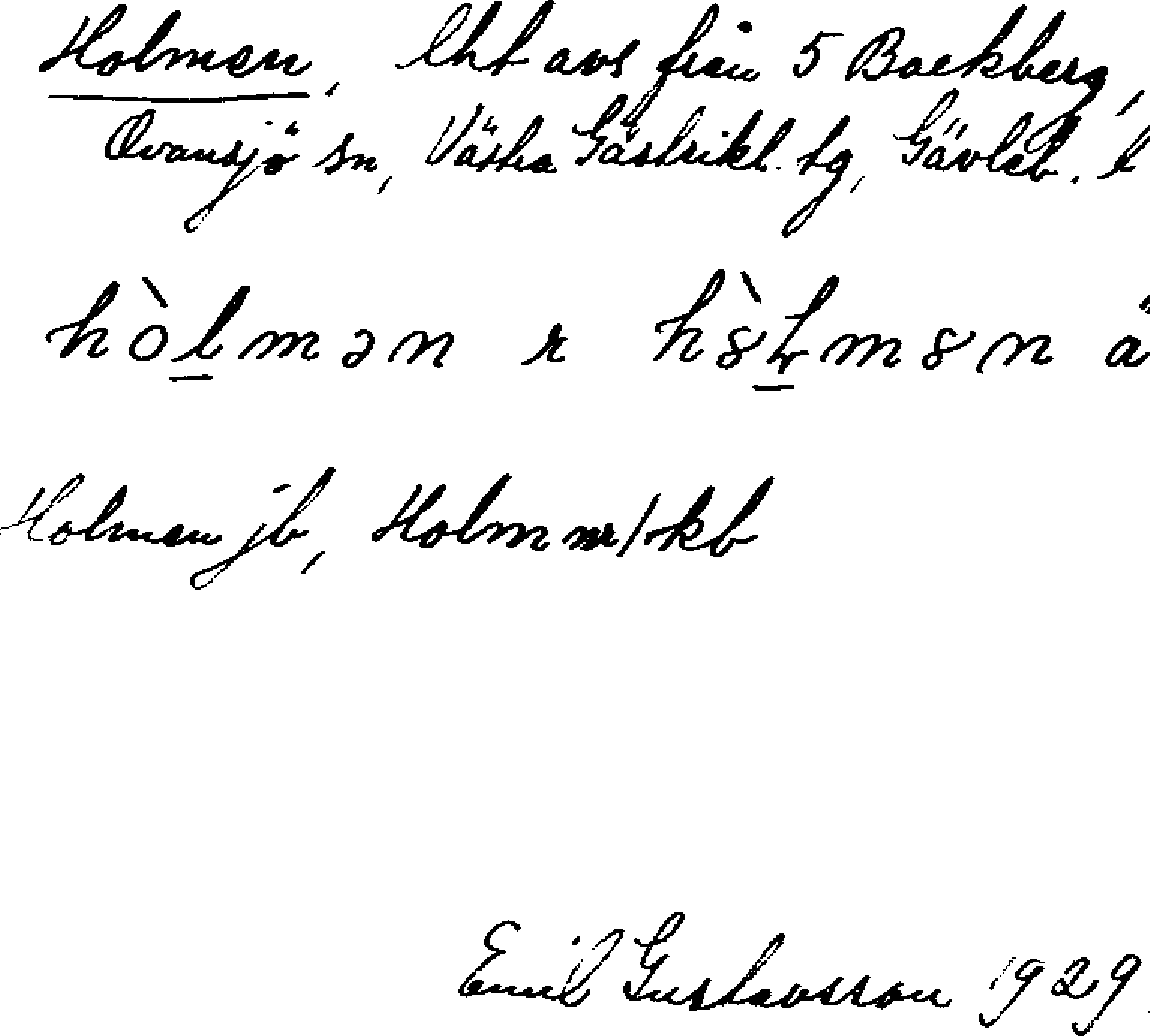 Holmen, lht avs från 5 Backberg,
Ovansjö sn, Västra Gästrikl. tg, Gävleb. l
hòlmən r hòlmən ä
Holmen jb, Holm nr 1 kb
Emil Gustavsson 1929